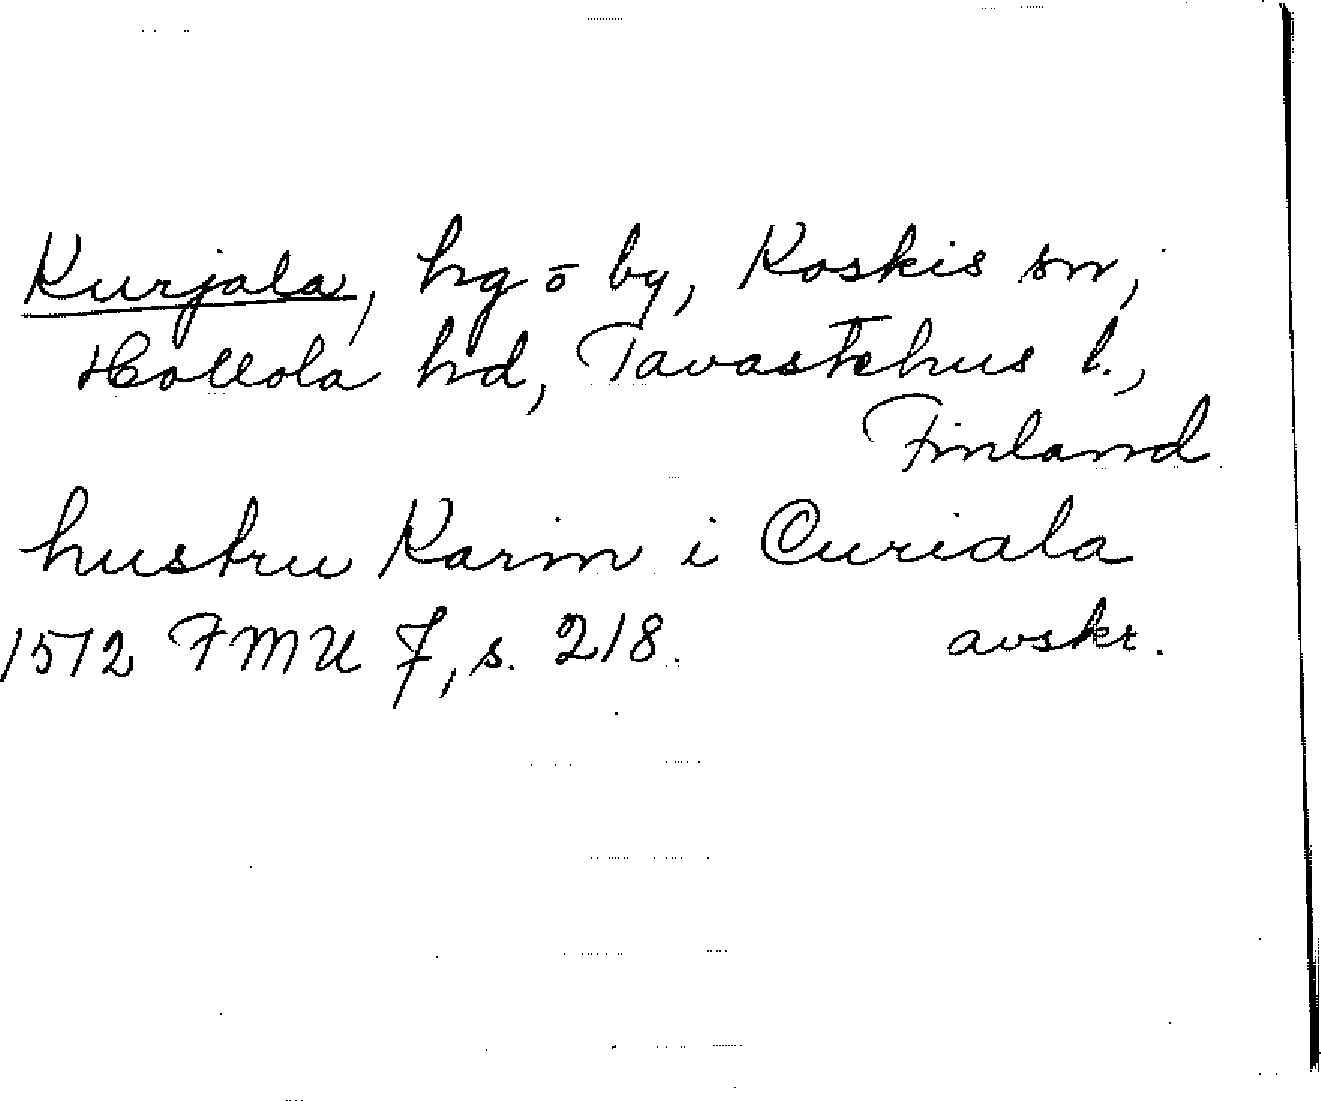 Kurjala, hg o by, Koskis sn,
Hollola hd, Tavastehus l.,
Finland
hustru Karin i Curiala
1512 FMU 7, s. 218. avskr.